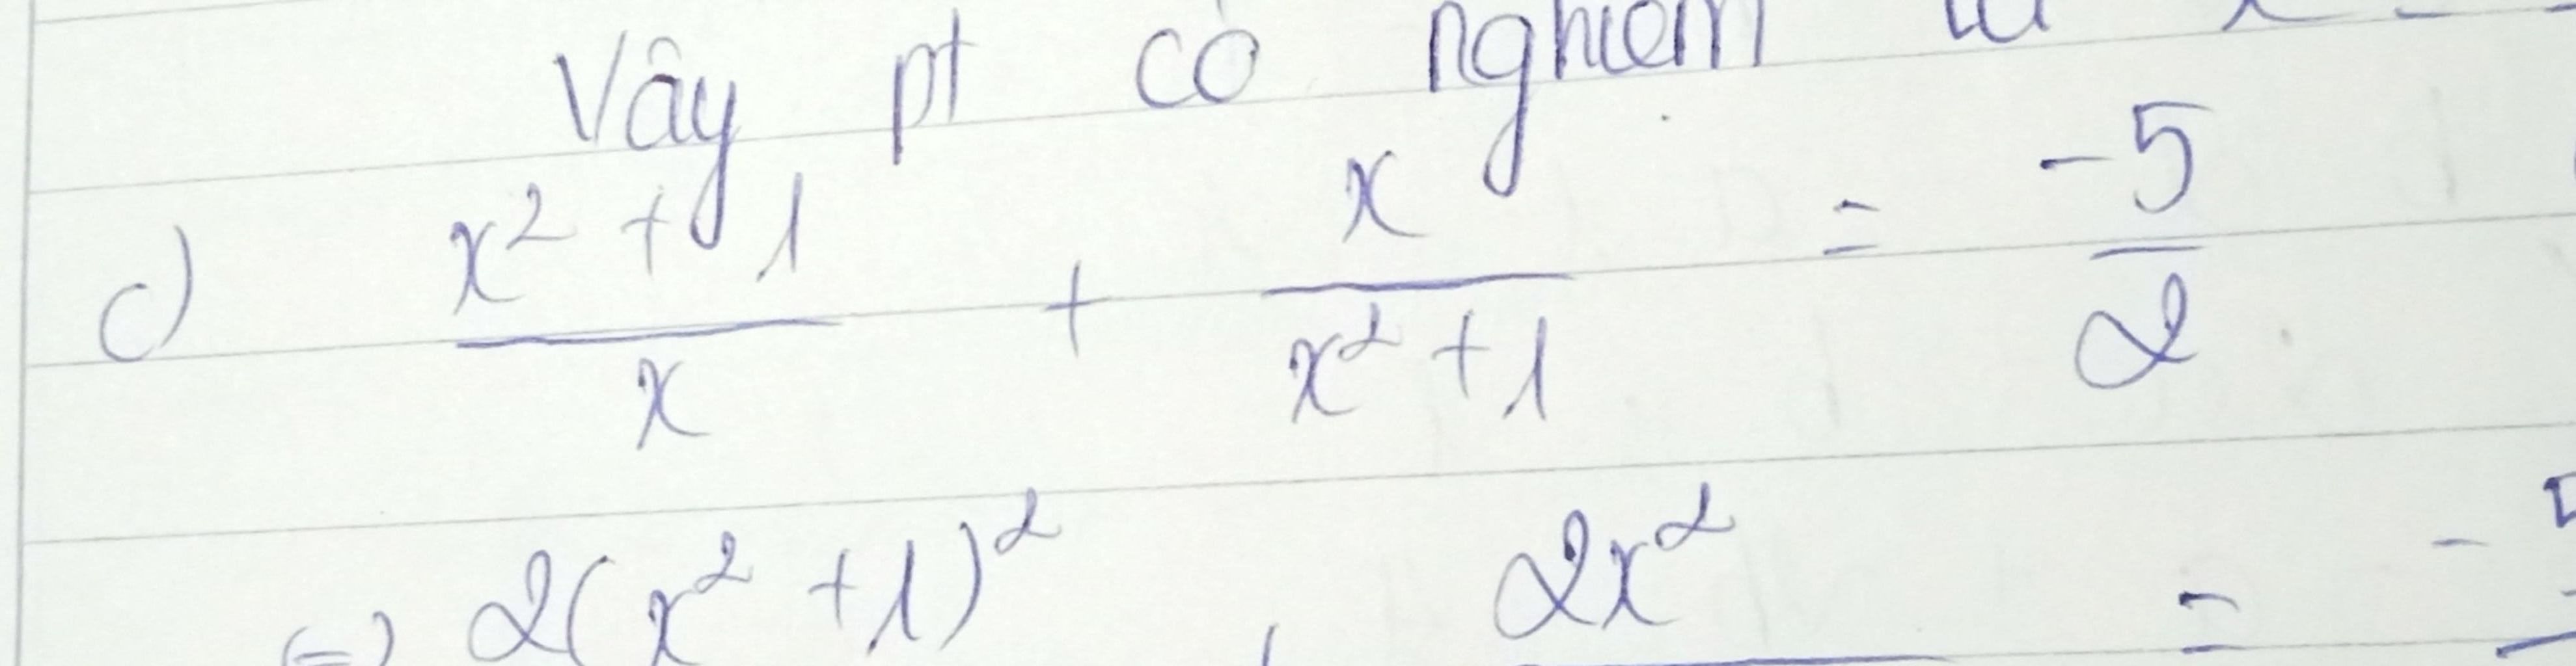 Vậy pt có nghiệm là x =
c) \frac{x^2 + 1}{x} + \frac{x}{x^2 + 1} = \frac{-5}{2}
(=) 2(x^2 + 1)^2 + 2x^2 = -5